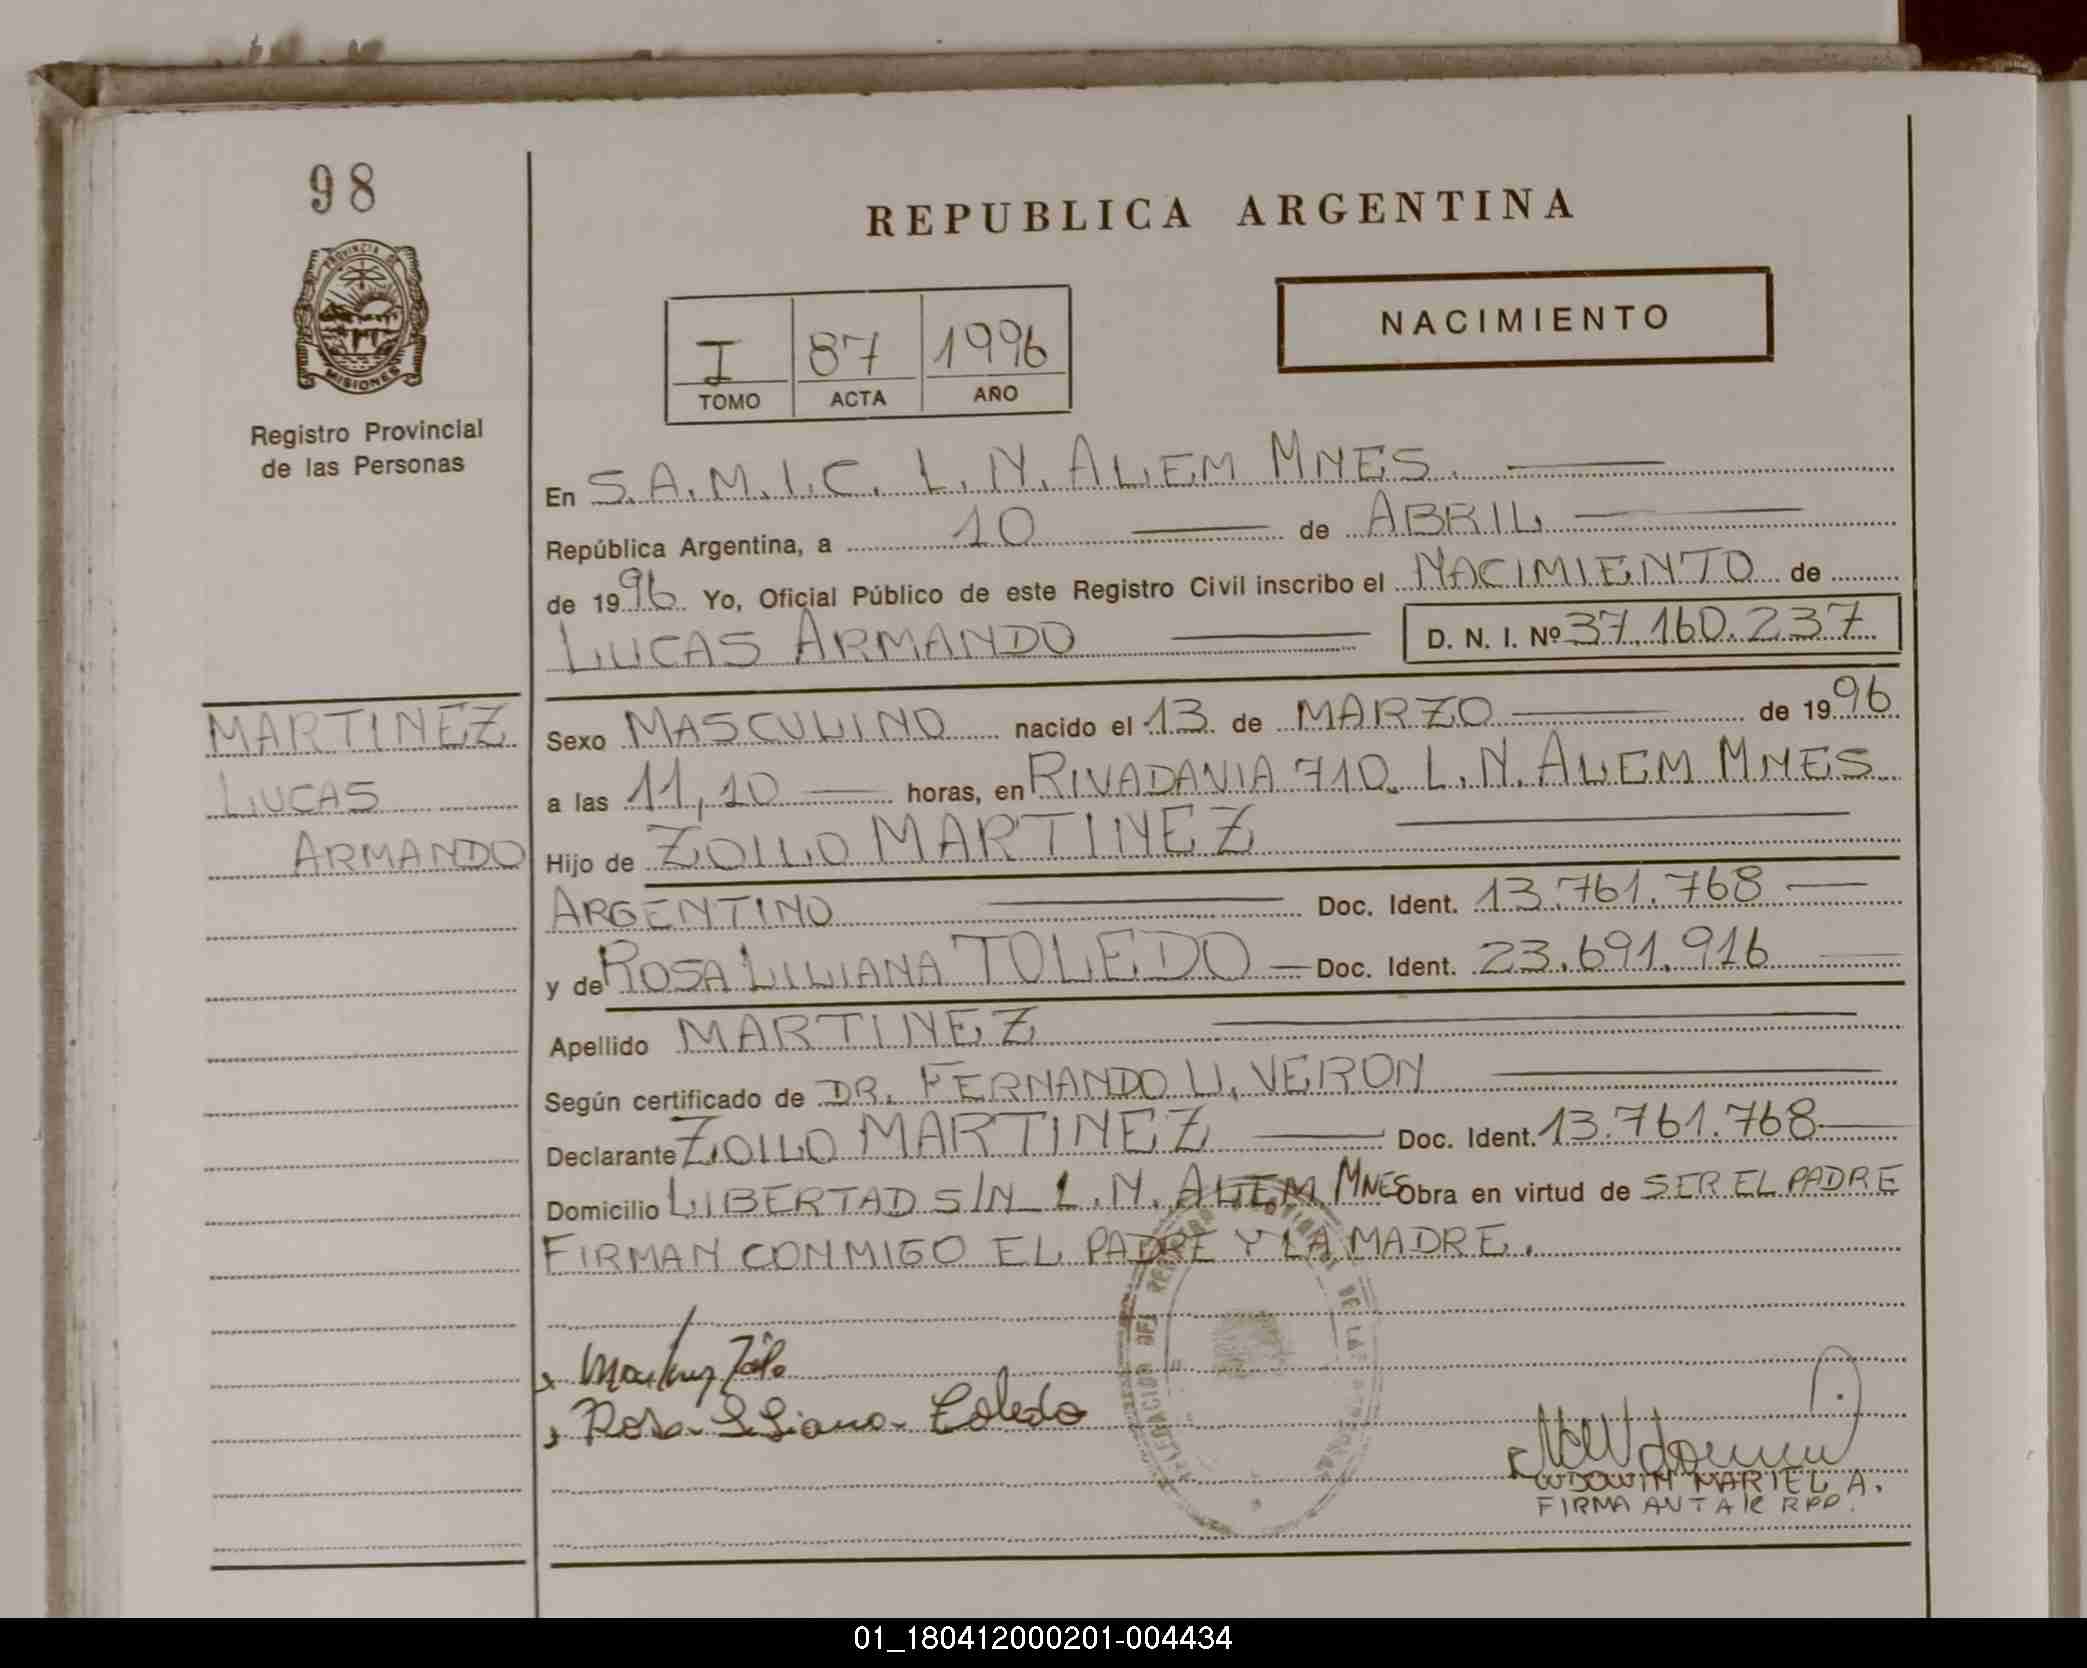 98
REPUBLICA ARGENTINA
PROVINCIA DE
MISIONES
Registro Provincial
de las Personas
I 87 1996
TOMO ACTA AÑO
NACIMIENTO
En S.A.M.I.C. L.N. ALEM MNES.
República Argentina, a 10 de ABRIL
de 1996 Yo, Oficial Público de este Registro Civil inscribo el NACIMIENTO de
LUCAS ARMANDO D. N. I. Nº 37.160.237
MARTINEZ
LUCAS
ARMANDO
Sexo MASCULINO nacido el 13 de MARZO de 1996
a las 11,10 horas, en RIVADAVIA 710. L.N. ALEM MNES
Hijo de ZOILO MARTINEZ
ARGENTINO Doc. Ident. 13.761.768
y de ROSA LILIANA TOLEDO Doc. Ident. 23.691.916
Apellido MARTINEZ
Según certificado de DR. FERNANDO L. VERON
Declarante ZOILO MARTINEZ Doc. Ident. 13.761.768
Domicilio LIBERTAD S/N L.N. ALEM MNES Obra en virtud de SER EL PADRE
FIRMAN CONMIGO EL PADRE Y LA MADRE.
Martinez Zoilo
Rosa Liliana Toledo
MARIEL A.
FIRMA
01_180412000201-004434